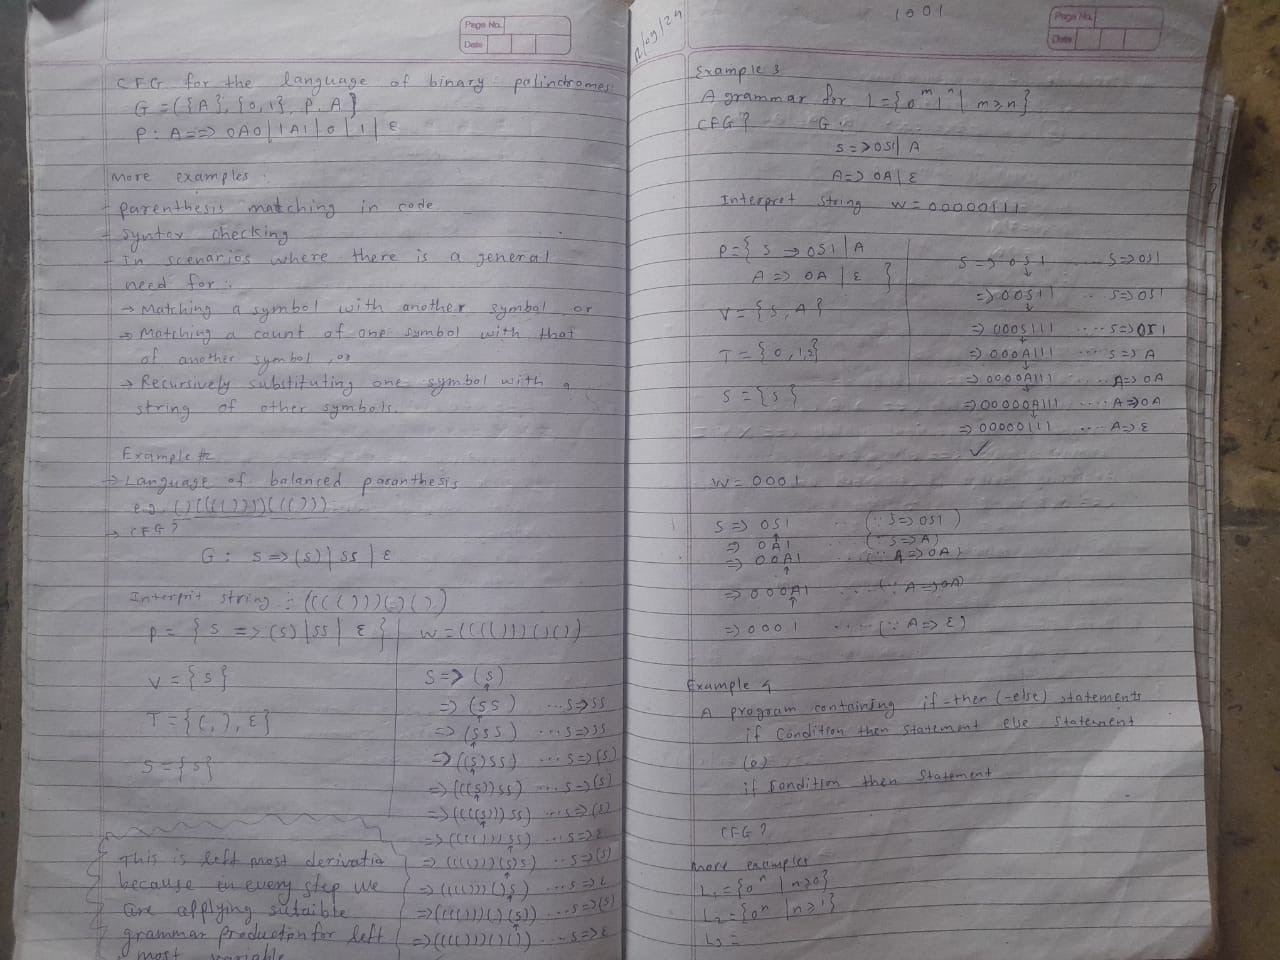 Page No.
Date
CFG for the language of binary palindromes
G = ({A}, {0,1}, P, A}
P: A => 0A0 | 1A1 | 0 | 1 | ε
More examples :
- parenthesis matching in code
- syntax checking
- In scenarios where there is a general
need for :
→ Matching a symbol with another symbol, or
→ Matching a count of one symbol with that
of another symbol, or
→ Recursively substituting one symbol with a
string of other symbols.
Example
→ Language of balanced paranthesis
e.g.
→ CFG?
G: S => (S) | SS | ε
Interprit string : (((()))()())
P = { S => (S) | SS | ε }
V = {S}
T = {(, ), ε}
S = {S}
This is left most derivatio
because in every step we
are applying sutaible
grammar production for left
most variable
W = (((()))()())
S => (S)
=> (SS) ...S=>SS
=> (SSS) ...S=>SS
=> ((S)SS) ...S=>(S)
=> (((S))SS) ...S=>(S)
=> ((((S)))SS) ...S=>(S)
=> (((()))SS) ...S=>ε
=> (((()))(S)S) ...S=>(S)
=> (((()))()S) ...S=>ε
=> (((()))()(S)) ...S=>(S)
=> (((()))()()) ...S=>ε
1001
Page No.
Date
Example 3
A grammar for L = {0^m 1^n | m ≥ n}
CFG? G:
S => 0S1 | A
A => 0A | ε
Interpret string W = 00000111
P = { S => 0S1 | A
A => 0A | ε }
V = {S, A}
T = {0,1,ε}
S = {S}
S => 0S1 ....S=>0S1
=> 00S11 ...S=>0S1
=> 000S111 ....S=>0S1
=> 000A111 ....S=>A
=> 0000A111 ....A=>0A
=> 00000A111 ....A=>0A
=> 00000111 ....A=>ε
✓
W = 0001
S => 0S1 ...(∵ S=>0S1)
=> 0A1 ...(∵ S=>A)
=> 00A1 ...(∵ A=>0A)
=> 000A1 ....(∵ A=>0A)
=> 0001 ....(∵ A=>ε)
Example 4
A program containing if-then(-else) statements
if Condition then Statement else Statement
(or)
if Condition then Statement
CFG?
More examples
L₁ = {0^n | n≥0}
L₂ = {0^n | n≥1}
L₃ =